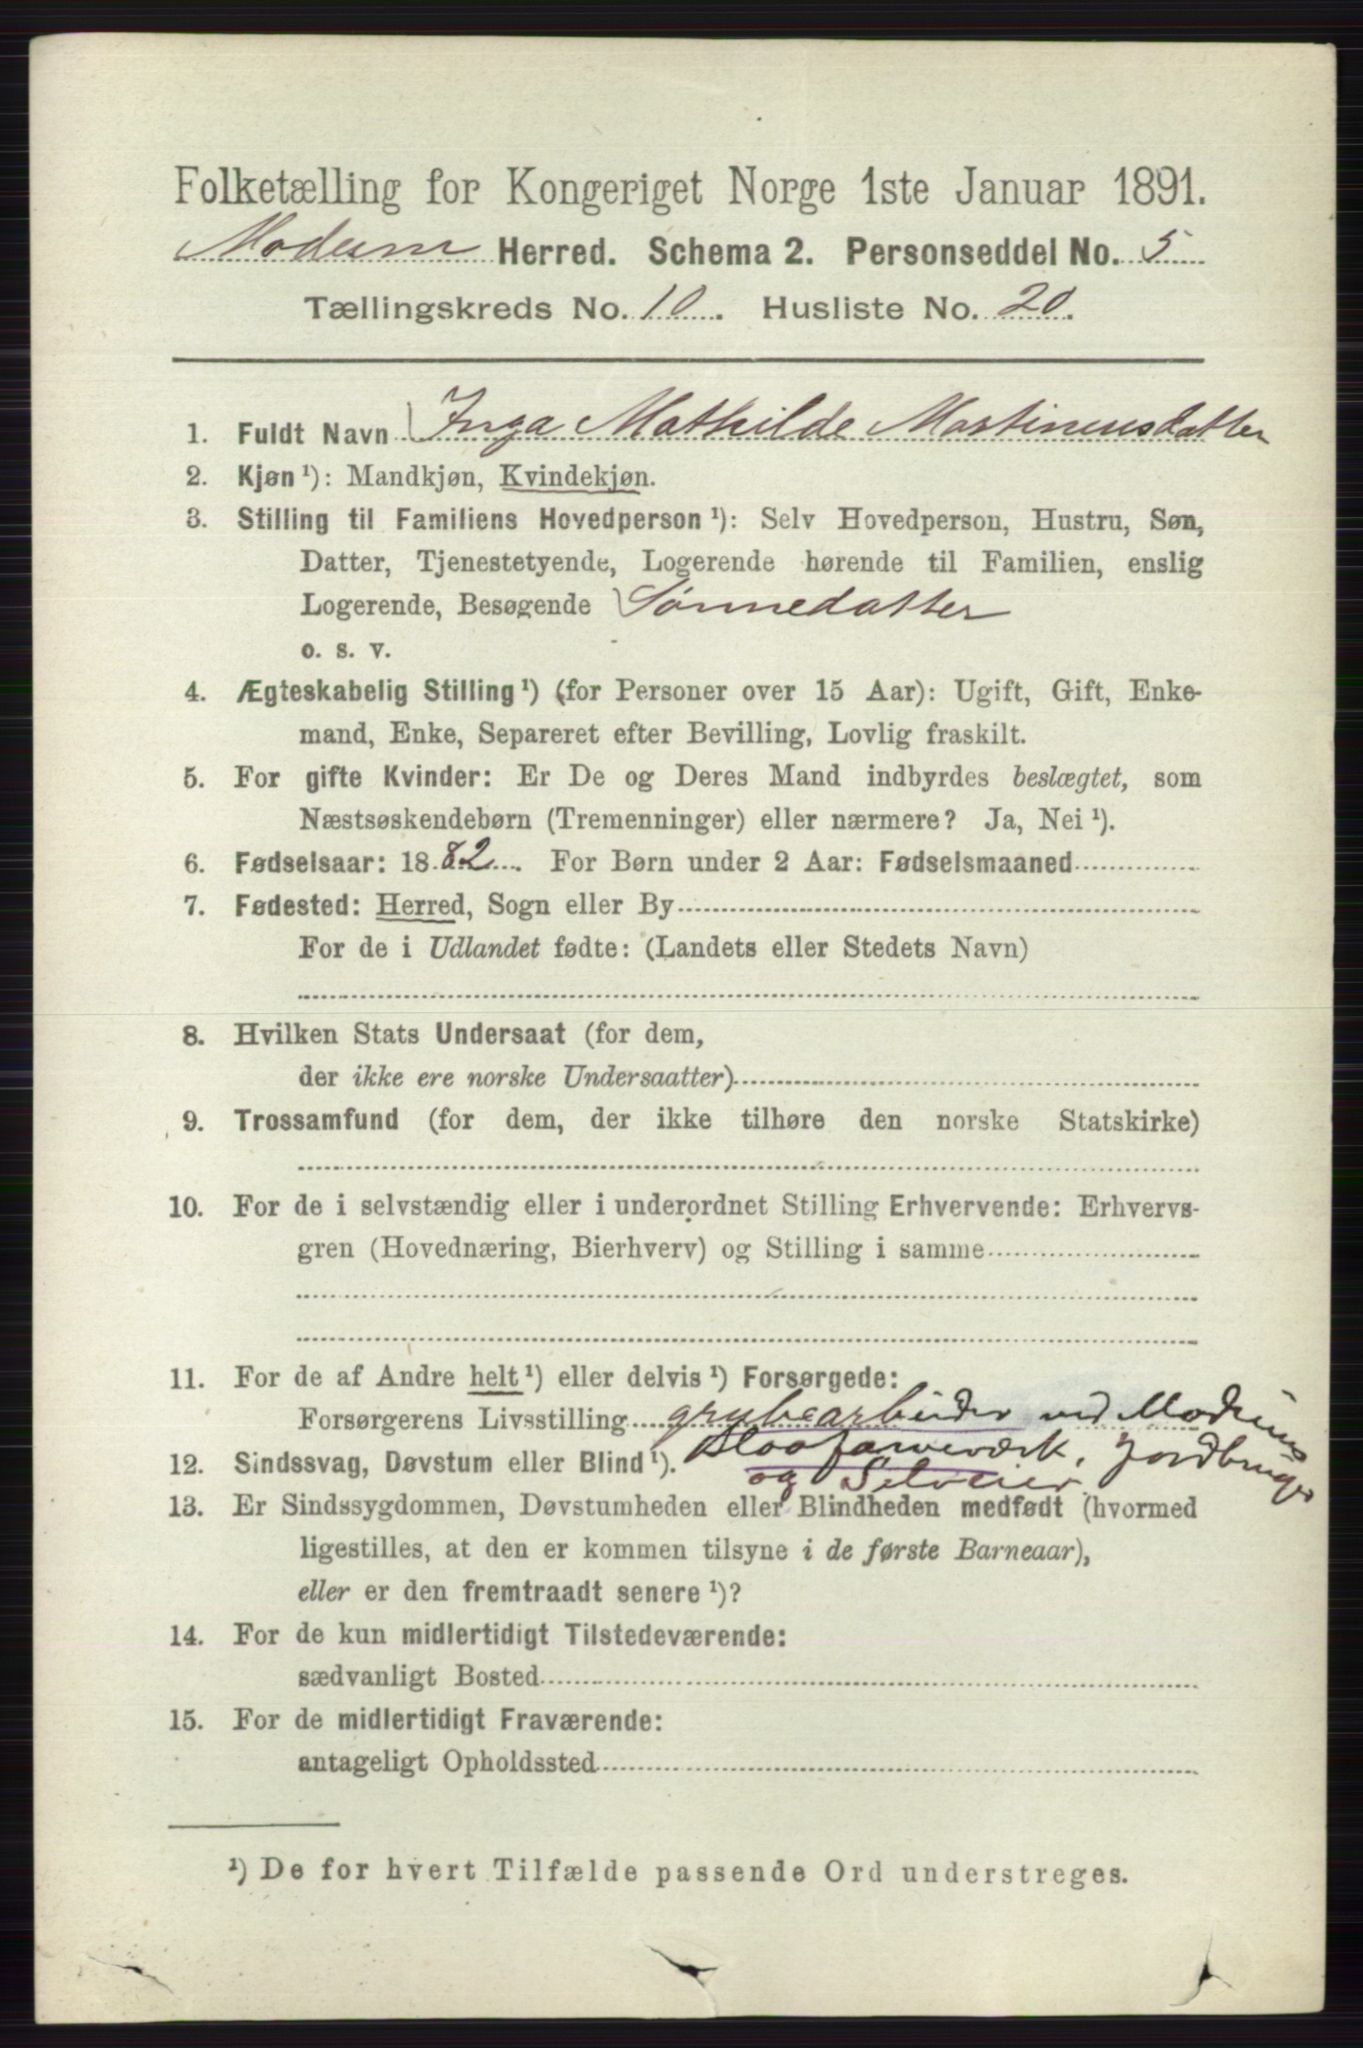 Folketælling for Kongeriget Norge 1ste Januar 1891.
Modum Herred. Schema 2. Personseddel No. 5
Tællingskreds No. 10. Husliste No. 20.
1. Fuldt Navn Inga Mathilde Martinusdatter
2. Kjøn ¹): Mandkjøn, Kvindekjøn.
3. Stilling til Familiens Hovedperson ¹): Selv Hovedperson, Hustru, Søn,
Datter, Tjenestetyende, Logerende hørende til Familien, enslig
Logerende, Besøgende Sønnedatter
o. s. v.
4. Ægteskabelig Stilling ¹) (for Personer over 15 Aar): Ugift, Gift, Enke-
mand, Enke, Separeret efter Bevilling, Lovlig fraskilt.
5. For gifte Kvinder: Er De og Deres Mand indbyrdes beslægtet, som
Næstsøskendebørn (Tremenninger) eller nærmere? Ja, Nei ¹).
6. Fødselsaar: 1882. For Børn under 2 Aar: Fødselsmaaned
7. Fødested: Herred, Sogn eller By
For de i Udlandet fødte: (Landets eller Stedets Navn)
8. Hvilken Stats Undersaat (for dem,
der ikke ere norske Undersaatter)
9. Trossamfund (for dem, der ikke tilhøre den norske Statskirke)
10. For de i selvstændig eller i underordnet Stilling Erhvervende: Erhvervs-
gren (Hovednæring, Bierhverv) og Stilling i samme
11. For de af Andre helt ¹) eller delvis ¹) Forsørgede:
Forsørgerens Livsstilling grubearbeider ved Modums
12. Sindssvag, Døvstum eller Blind ¹). Blaafarveværk, Jordbruger
og Selveier
13. Er Sindssygdommen, Døvstumheden eller Blindheden medfødt (hvormed
ligestilles, at den er kommen tilsyne i de første Barneaar),
eller er den fremtraadt senere ¹)?
14. For de kun midlertidigt Tilstedeværende:
sædvanligt Bosted
15. For de midlertidigt Fraværende:
antageligt Opholdssted
¹) De for hvert Tilfælde passende Ord understreges.